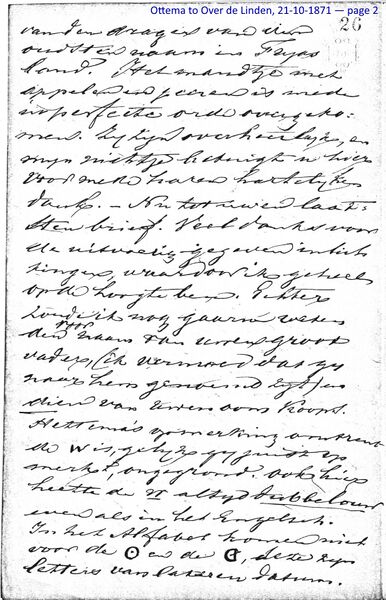 Ottema to Over de Linden, 21-10-1871 — page 2
26
van den drager van den
oudsten naam in Fryas
land. Het mandtje met
appelen en peeren is mede
in perfecte orde overgeko-
men. Zy zyn overheerlyk, en
myn nichtje betuigt u hier
voor mede haren hartelyken
dank. — Nu tot uwen laat-
sten brief. Veel dank voor
de uitvoerig gegeven inlich
tingen, waardoor ik geheel
op de hoogte ben. Echter
zoude ik nog gaarne weten
den naam van uwen groot
vader, (ik vermoed dat gy
naar hem genoemd zyt) en
dien van uwen oom Koops.
Hettema's opmerking omtrent
de W is, gelyk gy juist op
merkt, ongegrond. Ook hier
heette de altyd dubbelouw
even als in het Engelsch.
In het Alfabet komen niet
voor de en de, deze zyn
letters van lateren datum.